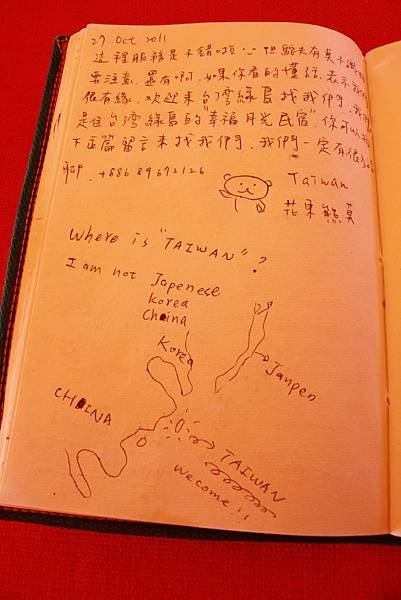 29 Oct 2011
這裡服務是不錯啦 但
要注意,還有啊,如果你看的懂話,表示我們
很有緣,歡迎來台灣綠島找我們,我們
是住台灣綠島的"幸福月光民宿",你可以
下面篇留言來找我們,我們一定有很
聯,+886 89672126
Taiwan
花東熊莫
Where is "TAIWAN"?
I am not Japenese
korea
China
Korea
Janpen
CHINA
TAIWAN
Wecome!!